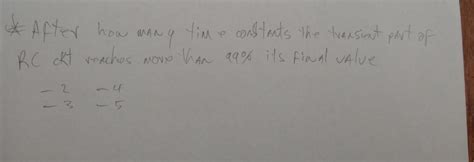 * After how many time constants the transient part of
RC ckt reaches more than 99% its final value
- 2 - 4
- 3 - 5